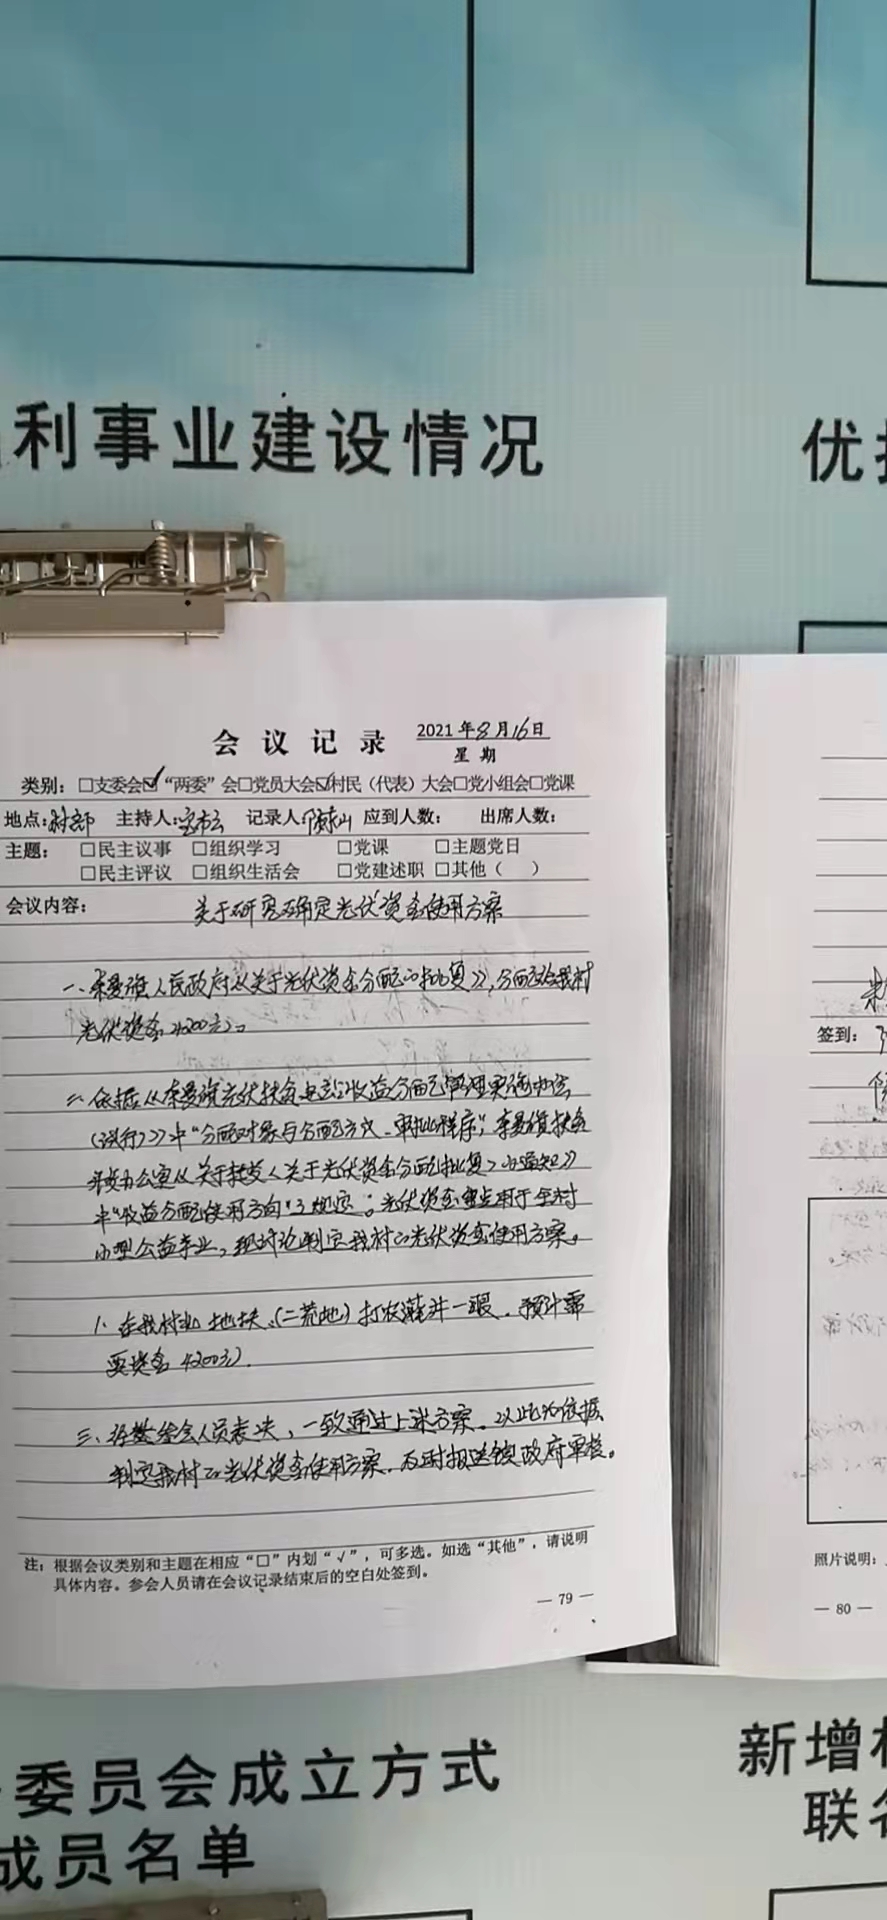 利事业建设情况
优
会 议 记 录
2021年8月16日
星 期
类别：□支委会☑“两委”会□党员大会☑村民（代表）大会□党小组会□党课
地点：村部 主持人： 记录人： 应到人数： 出席人数：
主题： □民主议事 □组织学习 □党课 □主题党日
□民主评议 □组织生活会 □党建述职 □其他（ ）
会议内容： 关于研究确定光伏资金使用方案
一、奈曼旗人民政府《关于光伏资金分配的批复》，分配给我村
光伏资金4200元。
二、依据《奈曼旗光伏扶贫电站收益分配管理实施办法
（试行）》中“分配对象与分配方式、审批程序”，奈曼旗扶贫
开发办公室《关于转发〈关于光伏资金分配批复〉的通知》
中“收益分配使用方向”了规定：光伏资金重点用于全村
小型公益事业，现讨论制定我村的光伏资金使用方案。
1、在我村 地块（二荒地）打农灌井一眼，预计需
要资金4200元。
三、经参会人员表决，一致通过上述方案。以此为依据
制定我村的光伏资金使用方案，及时报送镇政府审核。
注：根据会议类别和主题在相应“□”内划“√”，可多选。如选“其他”，请说明
具体内容。参会人员请在会议记录结束后的空白处签到。
— 79 —
签到：
照片说明：
— 80 —
委员会成立方式
成员名单
新增
联名